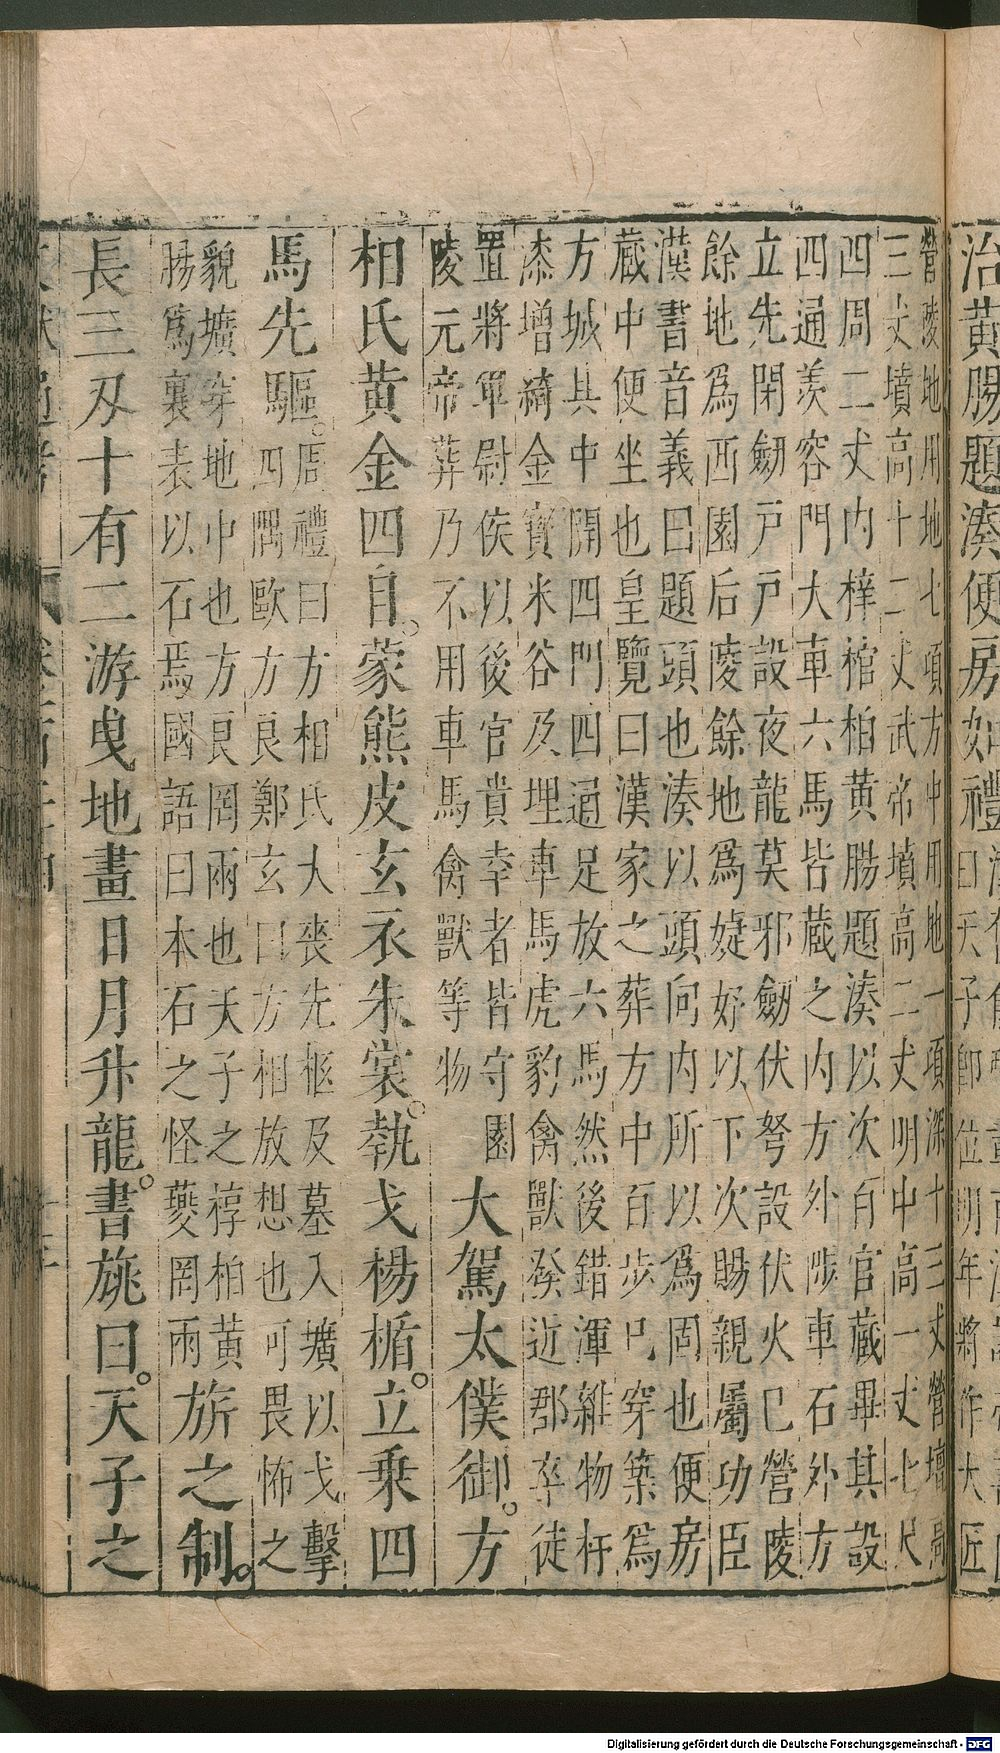 治黃腸題湊便房如禮
曰天子即位明年將作大匠
營陵地用地七頃方中用地一頃深十三丈營壇高
三丈墳高十二丈武帝墳高二丈明中高一丈七尺
四周二丈内梓棺柏黄腸題湊以次百官藏畢其設
四通羨容門大車六馬皆藏之内方外陟車石外方
立先閉劒戸戸設夜龍莫邪劒伏弩設伏火巳營陵
餘地爲西園后陵餘地爲婕妤以下次賜親屬功臣
漢書音義曰題頭也湊以頭向内所以爲固也便房
藏中便坐也皇覽曰漢家之葬方中百步巳穿築爲
方城其中開四門四通足放六馬然後錯渾雜物杅
漆增綺金寶米谷及埋車馬虎豹禽獸發近郡卒徒
置將軍尉侯以後官貴幸者皆守園
陵元帝葬乃不用車馬禽獸等物
大駕太僕御。方
相氏黄金四目。蒙熊皮玄衣朱裳。執戈楊楯。立乘四
馬先驅。
周禮曰方相氏大喪先柩及墓入壙以戈擊
四隅歐方良鄭玄曰方相放想也可畏怖之
貌壙穿地中也方良罔兩也天子之椁柏黄
腸爲裏表以石焉國語曰木石之怪夔罔兩
旂之制。
長三刃十有二游曳地畫日月升龍。書旐曰。天子之
Digitalisierung gefördert durch die Deutsche Forschungsgemeinschaft - DFG